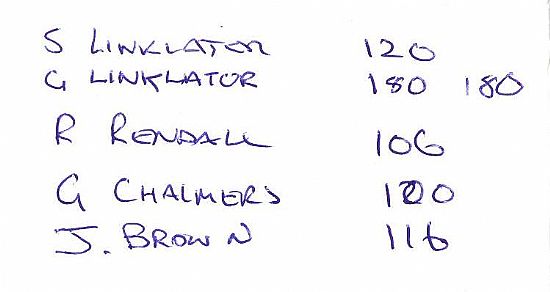 S LINKLATOR 120
G LINKLATOR 180 180
R RENDALL 106
G CHALMERS
J. BROWN 116